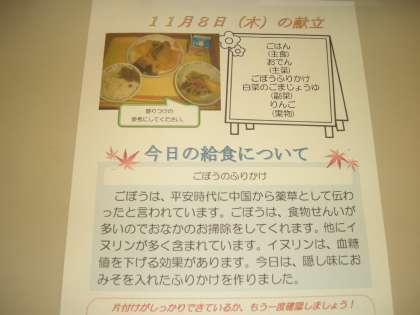 11月8日(木)の献立
ごはん
(主食)
おでん
(主菜)
ごぼうふりかけ
白菜のごまじょうゆ
(副菜)
りんご
(果物)
盛りつけの
参考にしてください。
今日の給食について
ごぼうのふりかけ
ごぼうは、平安時代に中国から薬草として伝わ
ったと言われています。ごぼうは、食物せんいが
多いのでおなかのお掃除をしてくれます。他にイ
ヌリンが多く含まれています。イヌリンは、血糖
値を下げる効果があります。今日は、隠し味にお
みそを入れたふりかけを作りました。
片付けがしっかりできているか、もう一度確認しましょう!